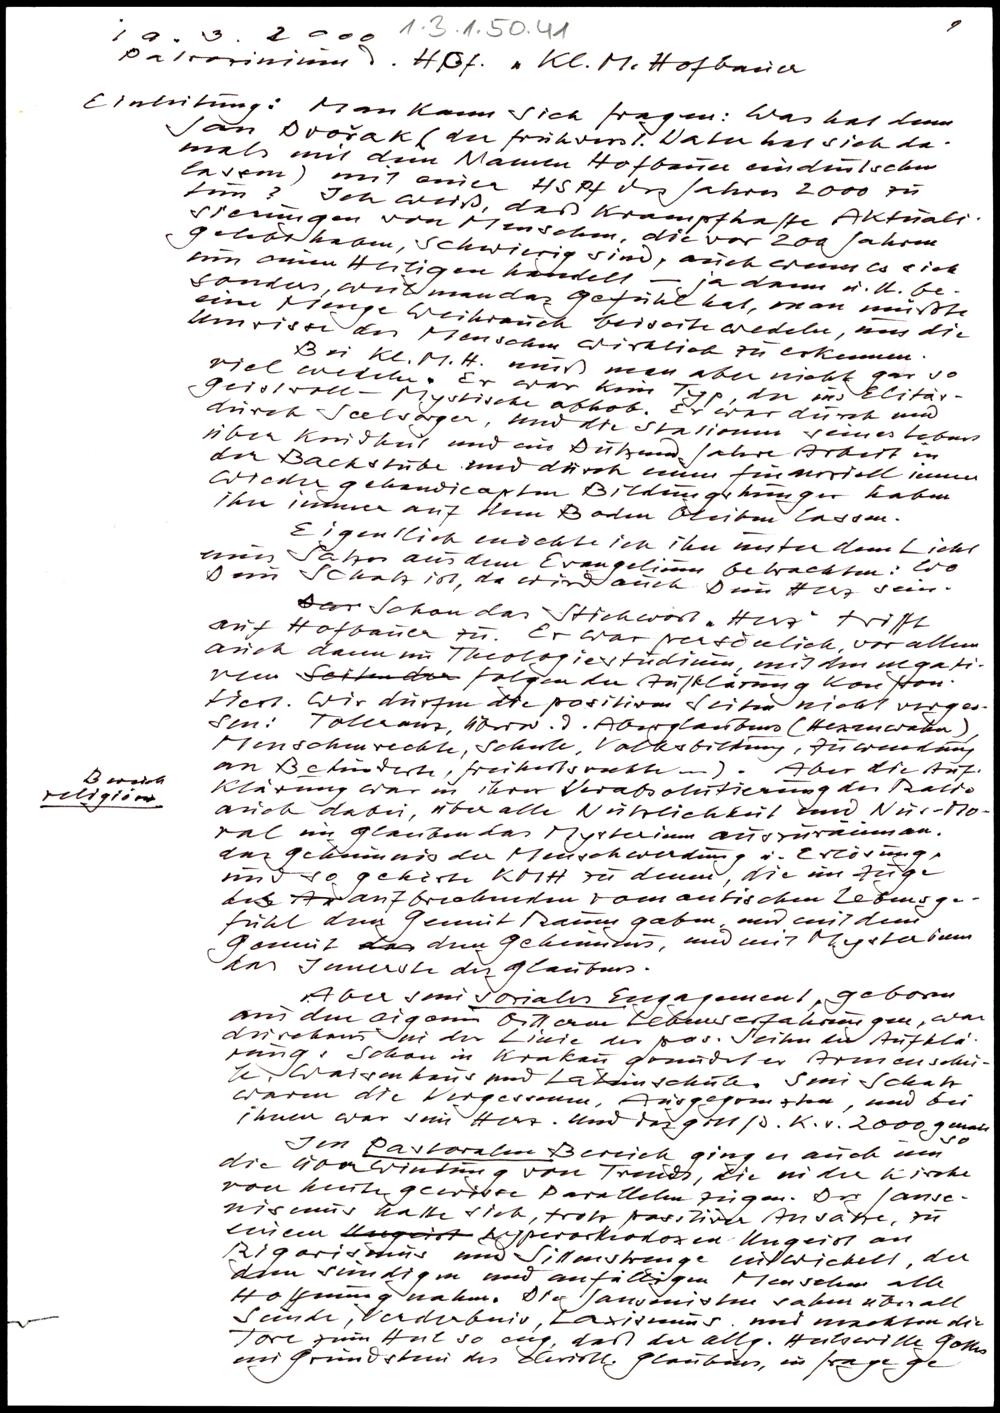 1.3.1.50.41
19.3.2000
Patrozinium d. HSpf. "Kl. M. Hofbauer
Einleitung: Man kann sich fragen: Was hat denn
Jan Dvořák (der frühverst. Vater hat sich da-
mals mit dem Namen Hofbauer eindeutschen
lassen) mit einer HSPf des Jahres 2000 zu
tun? Ich weiß, daß krampfhafte Aktuali-
sierungen von Menschen, die vor 200 Jahren
gelebt haben, schwierig sind, auch wenn es sich
um einen Heiligen handelt – ja dann u. U. be-
sonders, weil man das Gefühl hat, man müßte
eine Menge Weihrauch beiseite wedeln, um die
Umrisse des Menschen wirklich zu erkennen.
Bei Kl. M. H. muß man aber nicht gar so
viel wedeln. Er war kein Typ, der ins Elitär-
geistvoll-Mystische abhob. Er war durch und
durch Seelsorger, und die Stationen seines Lebens
über Kindheit und ein Dutzend Jahre Arbeit in
der Backstube und durch einen finanziell immer
wieder gehandicapten Bildungshunger haben
ihn immer auf dem Boden bleiben lassen.
Eigentlich möchte ich ihn unter dem Licht
eines Satzes aus dem Evangelium betrachten: Wo
Dein Schatz ist, da wird auch Dein Herz sein.
Schon das Stichwort "Herz" trifft
auf Hofbauer zu. Er war persönlich, vor allem
auch dann im Theologiestudium, mit den negati-
ven Seiten der Folgen der Aufklärung konfron-
tiert. Wir dürfen die positiven Seiten nicht verges-
sen: Toleranz, Überw. d. Aberglaubens (Hexenwahn),
Menschenrechte, Schule, Volksbildung, Zuwendung
an Behinderte, Freiheitsrechte –). Aber die Auf-
Bereich
religiös
klärung war in ihrer Verabsolutierung der Ratio
auch dabei, über alle Nützlichkeit und Nur-Mo-
ral im Glauben das Mysterium auszuräumen.
das Geheimnis der Menschwerdung u. Erlösung.
und so gehörte KMH zu denen, die im Zuge
des aufbrechenden romantischen Lebensge-
fühl dem Gemüt Raum gaben, und mit dem
Gemüt das dem Geheimnis, und mit Mysterium
das Innerste des Glaubens.
Aber sein soziales Engagement, geboren
aus den eigenen bitteren Lebenserfahrungen, war
durchaus in der Linie der pos. Seiten der Aufklä-
rung: Schon in Krakau gründet er Armenschu-
le, Waisenhaus und Lateinschule. Sein Schatz
waren die Vergessenen, Ausgegrenzten, und bei
ihnen war sein Herz. Und das gilt f. d. K. v. 2000 genau
so
Im Pastoralen Bereich ging es auch um
die Überwindung von Trends, die in der Kirche
von heute gewisse Parallelen zeigen. Der Janse-
nismus hatte sich, trotz positiver Ansätze, zu
einem Ungeist hyperorthodoxen Ungeist an
Rigorismus und Sittenstrenge entwickelt, der
dem sündigen und anfälligen Menschen alle
Hoffnung nahm. Die Jansenisten sahen überall
Sünde, Verderbnis, Laxismus und machten die
Tore zum Heil so eng, daß der allg. Heilswille Gottes
ein Grundstein des christl. Glaubens, in Frage ge